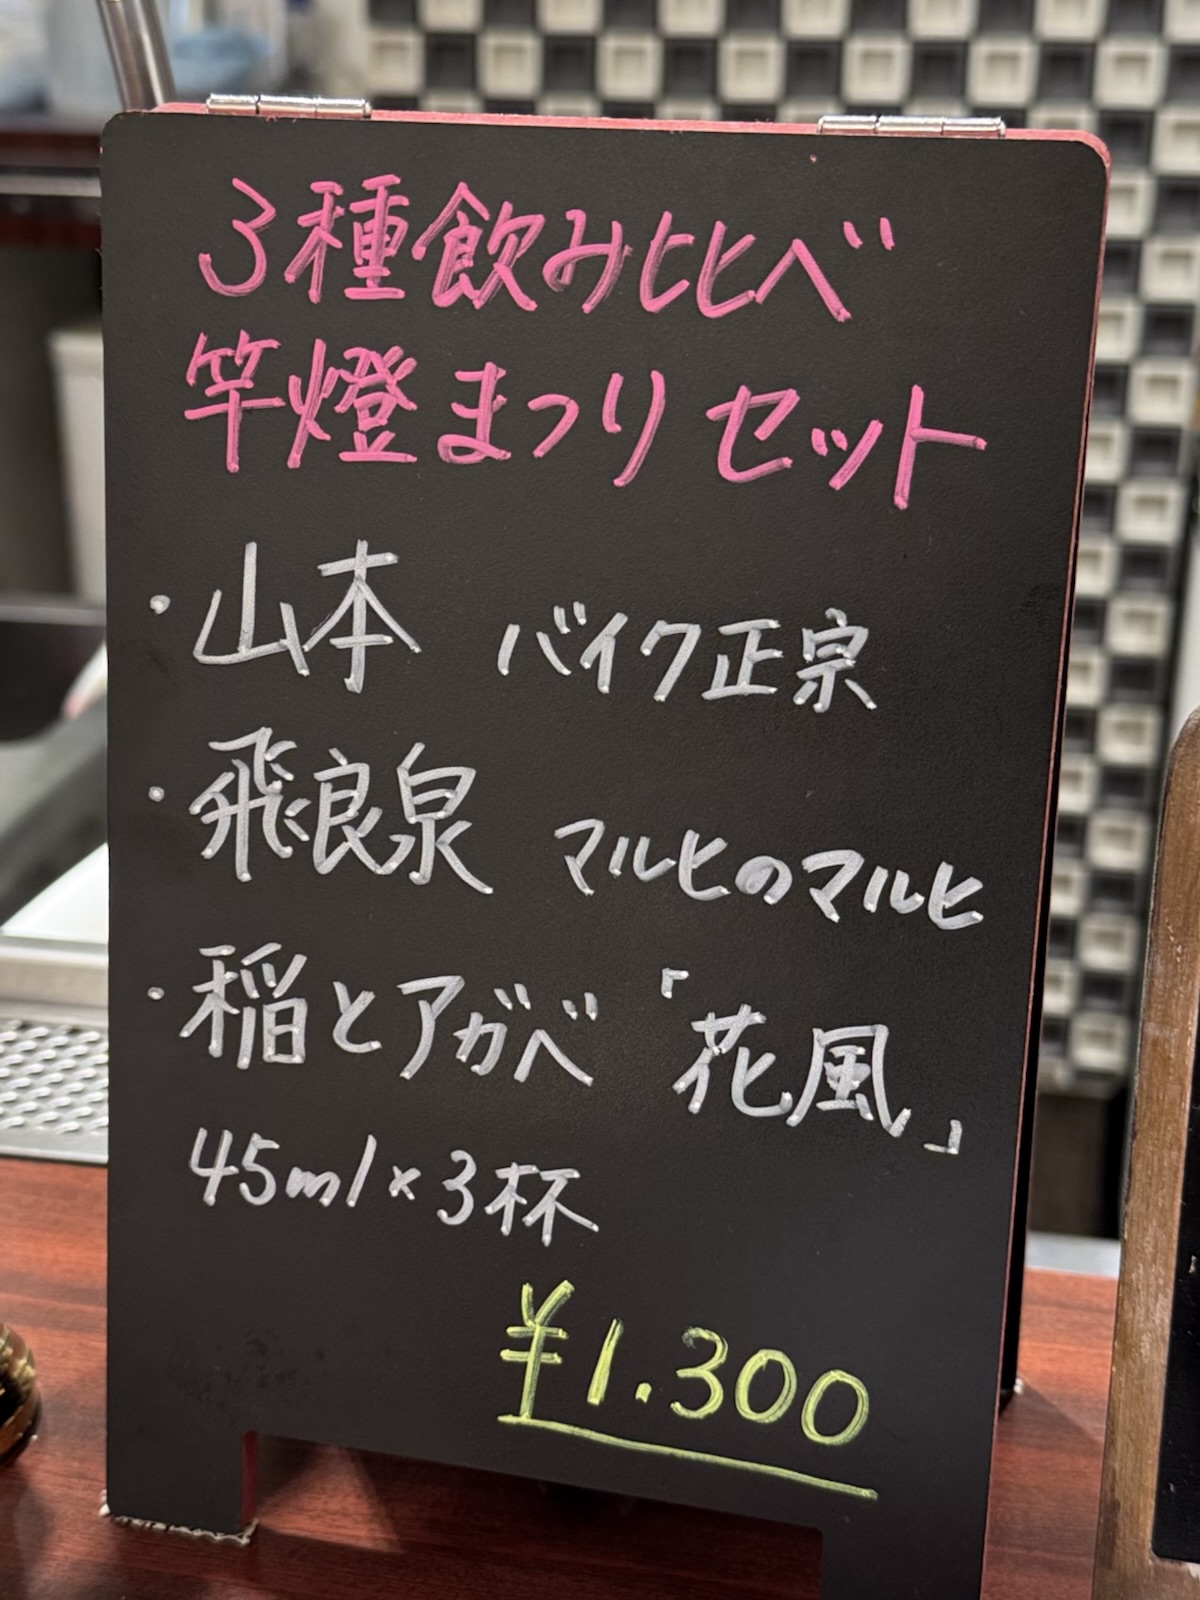 3種飲み比べ
竿燈まつりセット
・山本 バイク正宗
・飛良泉 マルヒのマルヒ
・稲とアガベ「花風」
45ml×3杯
¥1.300